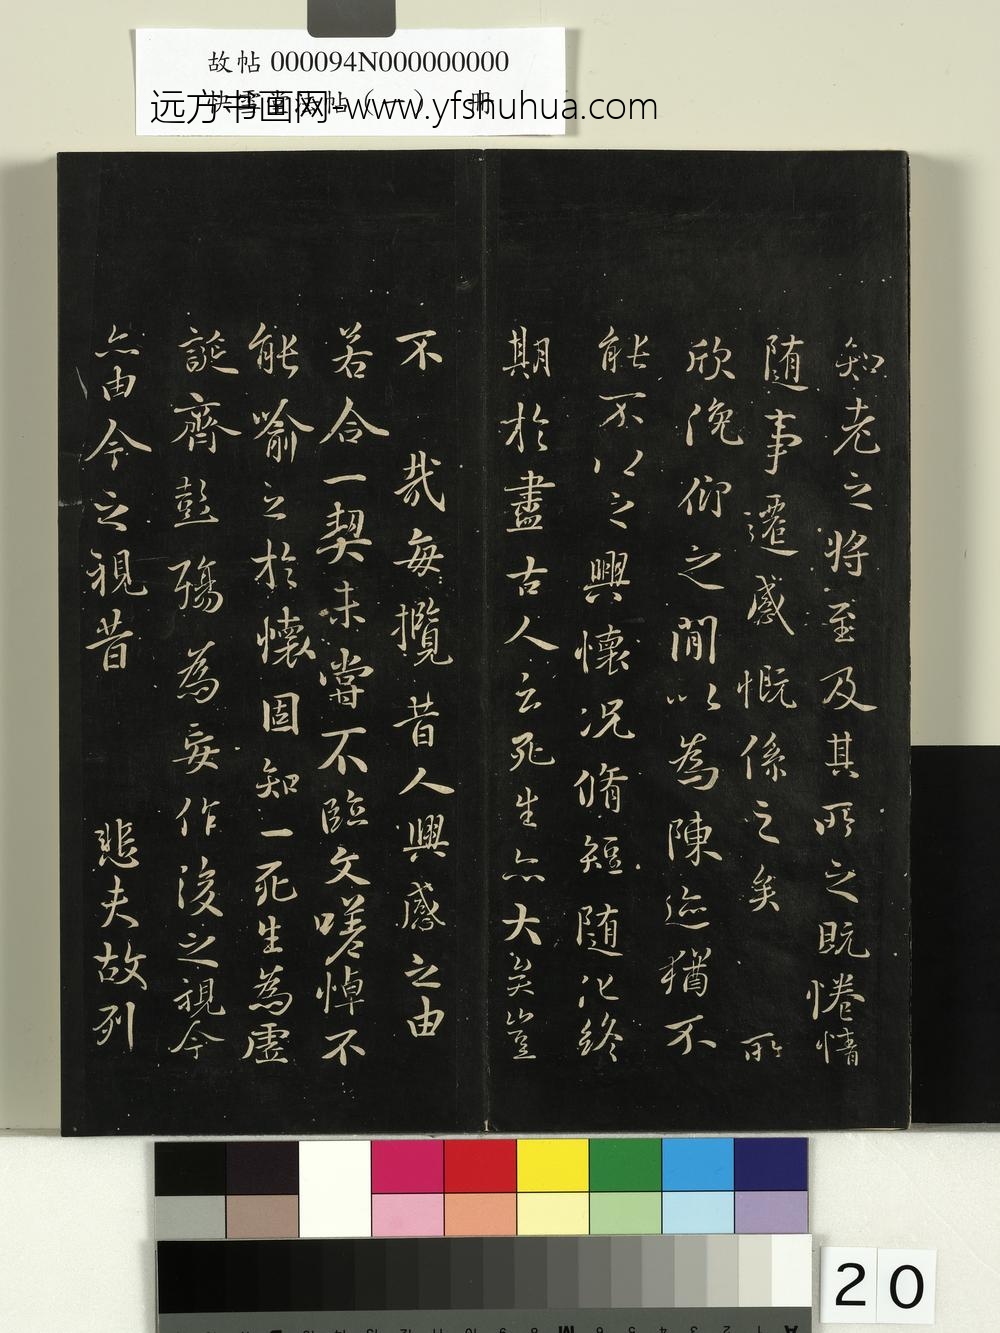 故帖 000094N000000000
快雪堂法帖（一） 册
远方书画网-www.yfshuhua.com
知老之将至及其所之既惓情
随事遷感慨係之矣 所
欣俛仰之間以為陳迹猶不
能不以之興懷況脩短随化終
期於盡古人云死生亦大矣豈
不 哉每攬昔人興感之由
若合一契未嘗不臨文嗟悼不
能喻之於懷固知一死生為虚
誕齊彭殤為妄作後之視今
亦由今之視昔 悲夫故列
20